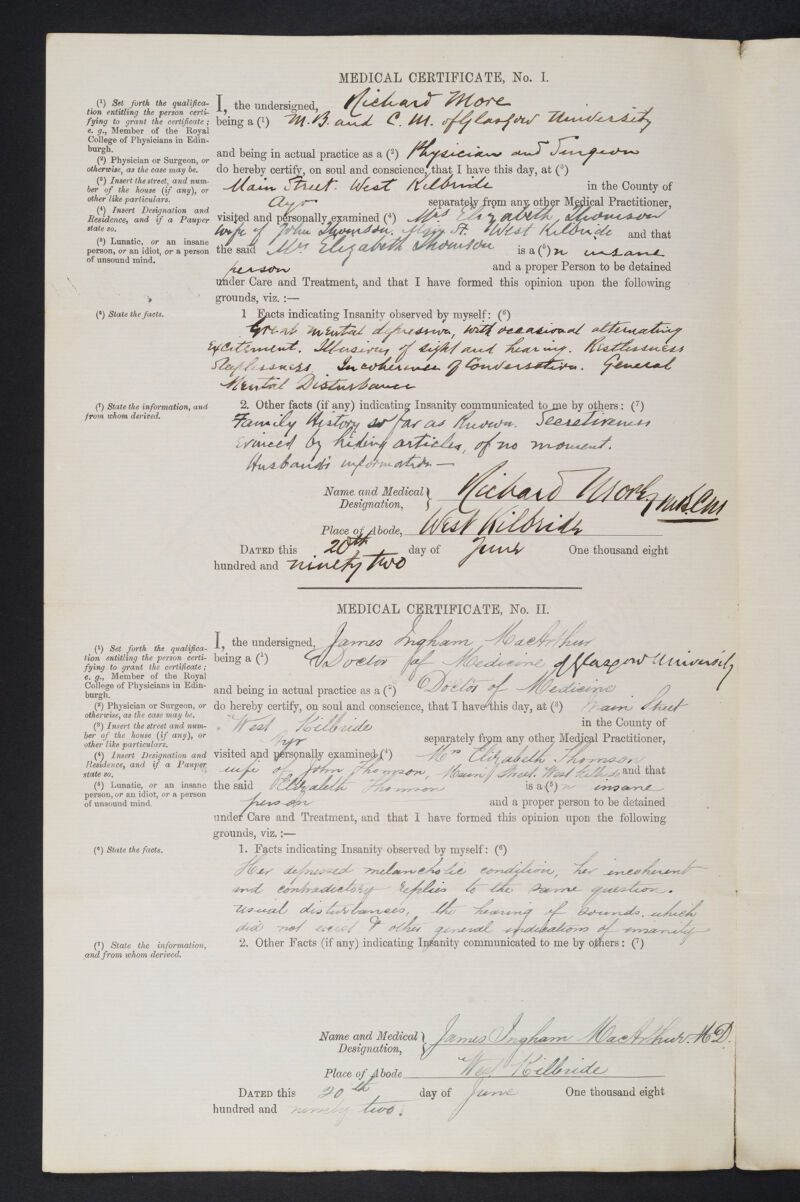 MEDICAL CERTIFICATE, No. I.
(¹) Set forth the qualifica-
tion entitling the person certi-
fying to grant the certificate;
e. g., Member of the Royal
College of Physicians in Edin-
burgh.
(²) Physician or Surgeon, or
otherwise, as the case may be.
(³) Insert the street, and num-
ber of the house (if any), or
other like particulars.
(⁴) Insert Designation and
Residence, and if a Pauper
state so.
(⁵) Lunatic, or an insane
person, or an idiot, or a person
of unsound mind.
I, the undersigned, Richard More
being a (¹) M.B. and C.M. of Glasgow University
and being in actual practice as a (²) Physician and Surgeon
do hereby certify, on soul and conscience, that I have this day, at (³)
Main Street. West Kilbride in the County of
Ayr separately from any other Medical Practitioner,
visited and personally examined (⁴) Mrs Elizabeth Thomson
wife of John Thomson. Main St. West Kilbride and that
the said Mrs Elizabeth Thomson is a (⁵) n insane
person and a proper Person to be detained
under Care and Treatment, and that I have formed this opinion upon the following
grounds, viz. :—
(⁶) State the facts.
1 Facts indicating Insanity observed by myself: (⁶)
Great mental depression, with occasional alternating
excitement. Illusions of sight and hearing. Restlessness
Sleeplessness. Incoherence of Conversation. General
Mental Disturbance
(⁷) State the information, and
from whom derived.
2. Other facts (if any) indicating Insanity communicated to me by others: (⁷)
Family History so far as Known. Secretiveness
evinced by hiding articles, of no moment.
Husband's information —
Name and Medical Designation, Richard More, M.B.C.M
Place of Abode, West Kilbride
DATED this 20th day of June One thousand eight
hundred and ninety two
MEDICAL CERTIFICATE, No. II.
(¹) Set forth the qualifica-
tion entitling the person certi-
fying to grant the certificate;
e. g., Member of the Royal
College of Physicians in Edin-
burgh.
(²) Physician or Surgeon, or
otherwise, as the case may be.
(³) Insert the street and num-
ber of the house (if any), or
other like particulars.
(⁴) Insert Designation and
Residence, and if a Pauper
state so.
(⁵) Lunatic, or an insane
person, or an idiot, or a person
of unsound mind.
I, the undersigned, James Ingham MacArthur
being a (¹) Doctor of Medicine of Glasgow University
and being in actual practice as a (²) Doctor of Medicine
do hereby certify, on soul and conscience, that I have this day, at (³) Main Street
West Kilbride in the County of
Ayr separately from any other Medical Practitioner,
visited and personally examined (⁴) Mrs Elizabeth Thomson
wife of John Thomson, Main Street West Kilbride and that
the said Elizabeth Thomson is a (⁵) n insane
person and a proper person to be detained
under Care and Treatment, and that I have formed this opinion upon the following
grounds, viz. :—
(⁶) State the facts.
1. Facts indicating Insanity observed by myself: (⁶)
Her depressed melancholic condition, her incoherent
and contradictory replies to the same question.
visual disturbances, the hearing of sounds which
did not exist & other general indications of insanity
(⁷) State the information,
and from whom derived.
2. Other Facts (if any) indicating Insanity communicated to me by others: (⁷)
Name and Medical Designation, James Ingham MacArthur. M.D.
Place of Abode West Kilbride
DATED this 20th day of June One thousand eight
hundred and ninety two.